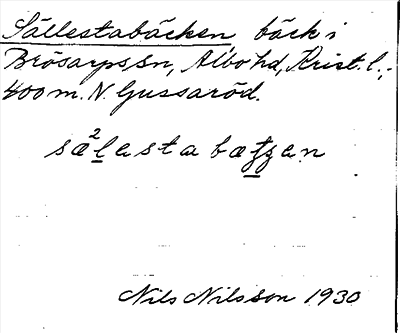 Sällestabäcken bäck i
Brösarps sn, Albo hd, Krist. l.,
400 m. N. Gussaröd.
sæ²lesta bætʒen
Nils Nilsson 1930